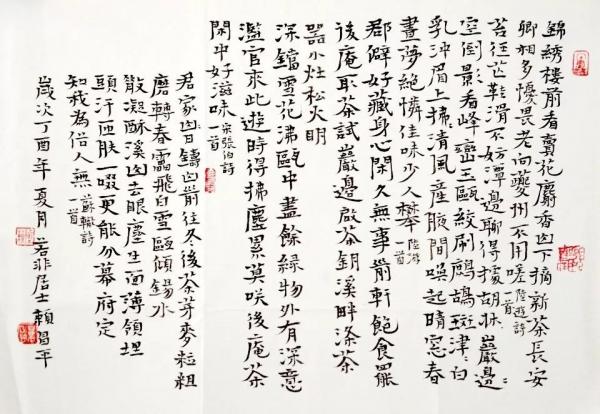 錦綉樓前看賣花麝香山下摘新茶長安
卿相多憂畏老向夔州不用嗟 陸遊詩一首
苔徑芒鞋滑不妨潭邊聊得據胡牀巖邊
空倒影看峰巒玉甌絞刷鷓鴣斑津白
乳沖眉上拂清風産腋間喚起晴窓春
晝夢絶憐佳味少人攀 陸游一首
郡僻好藏身心閑久無事前軒飽食罷
後庵取茶試巖邊啟茶鑰溪畔滌茶
器小灶松火明
深鐺雪花沸甌中盡餘緑物外有深意
濫官來此遊時得拂塵累莫咲後庵茶
閑中好滋味 宋張伯詩一首
君家日鑄山前住冬後茶芽麥粒粗
磨轉春雷飛白雪甌傾錫水
散凝酥溪山去眼塵生面薄領埋
頭汗匝膚一啜更能分幕府定
知我為俗人無 蘇轍詩一首
歲次丁酉年夏月若非居士賴昌平